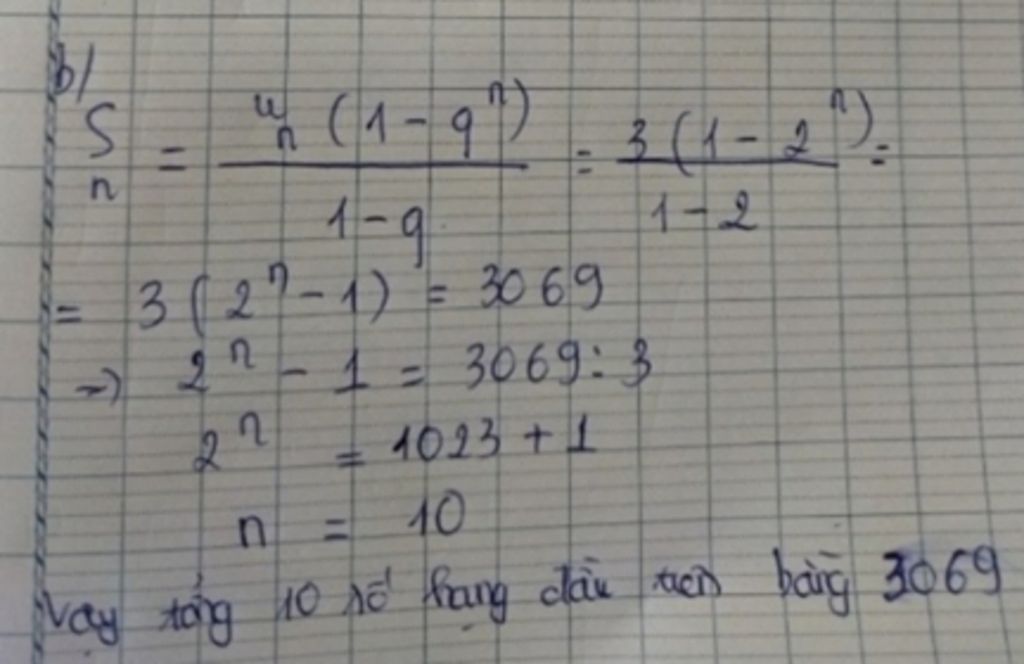 b/
S_n = u_n (1 - q^n) / (1 - q) = 3 (1 - 2^n) / (1 - 2) =
= 3 (2^n - 1) = 3069
→ 2^n - 1 = 3069 : 3
2^n = 1023 + 1
n = 10
Vậy tổng 10 số hạng đầu tiên bằng 3069